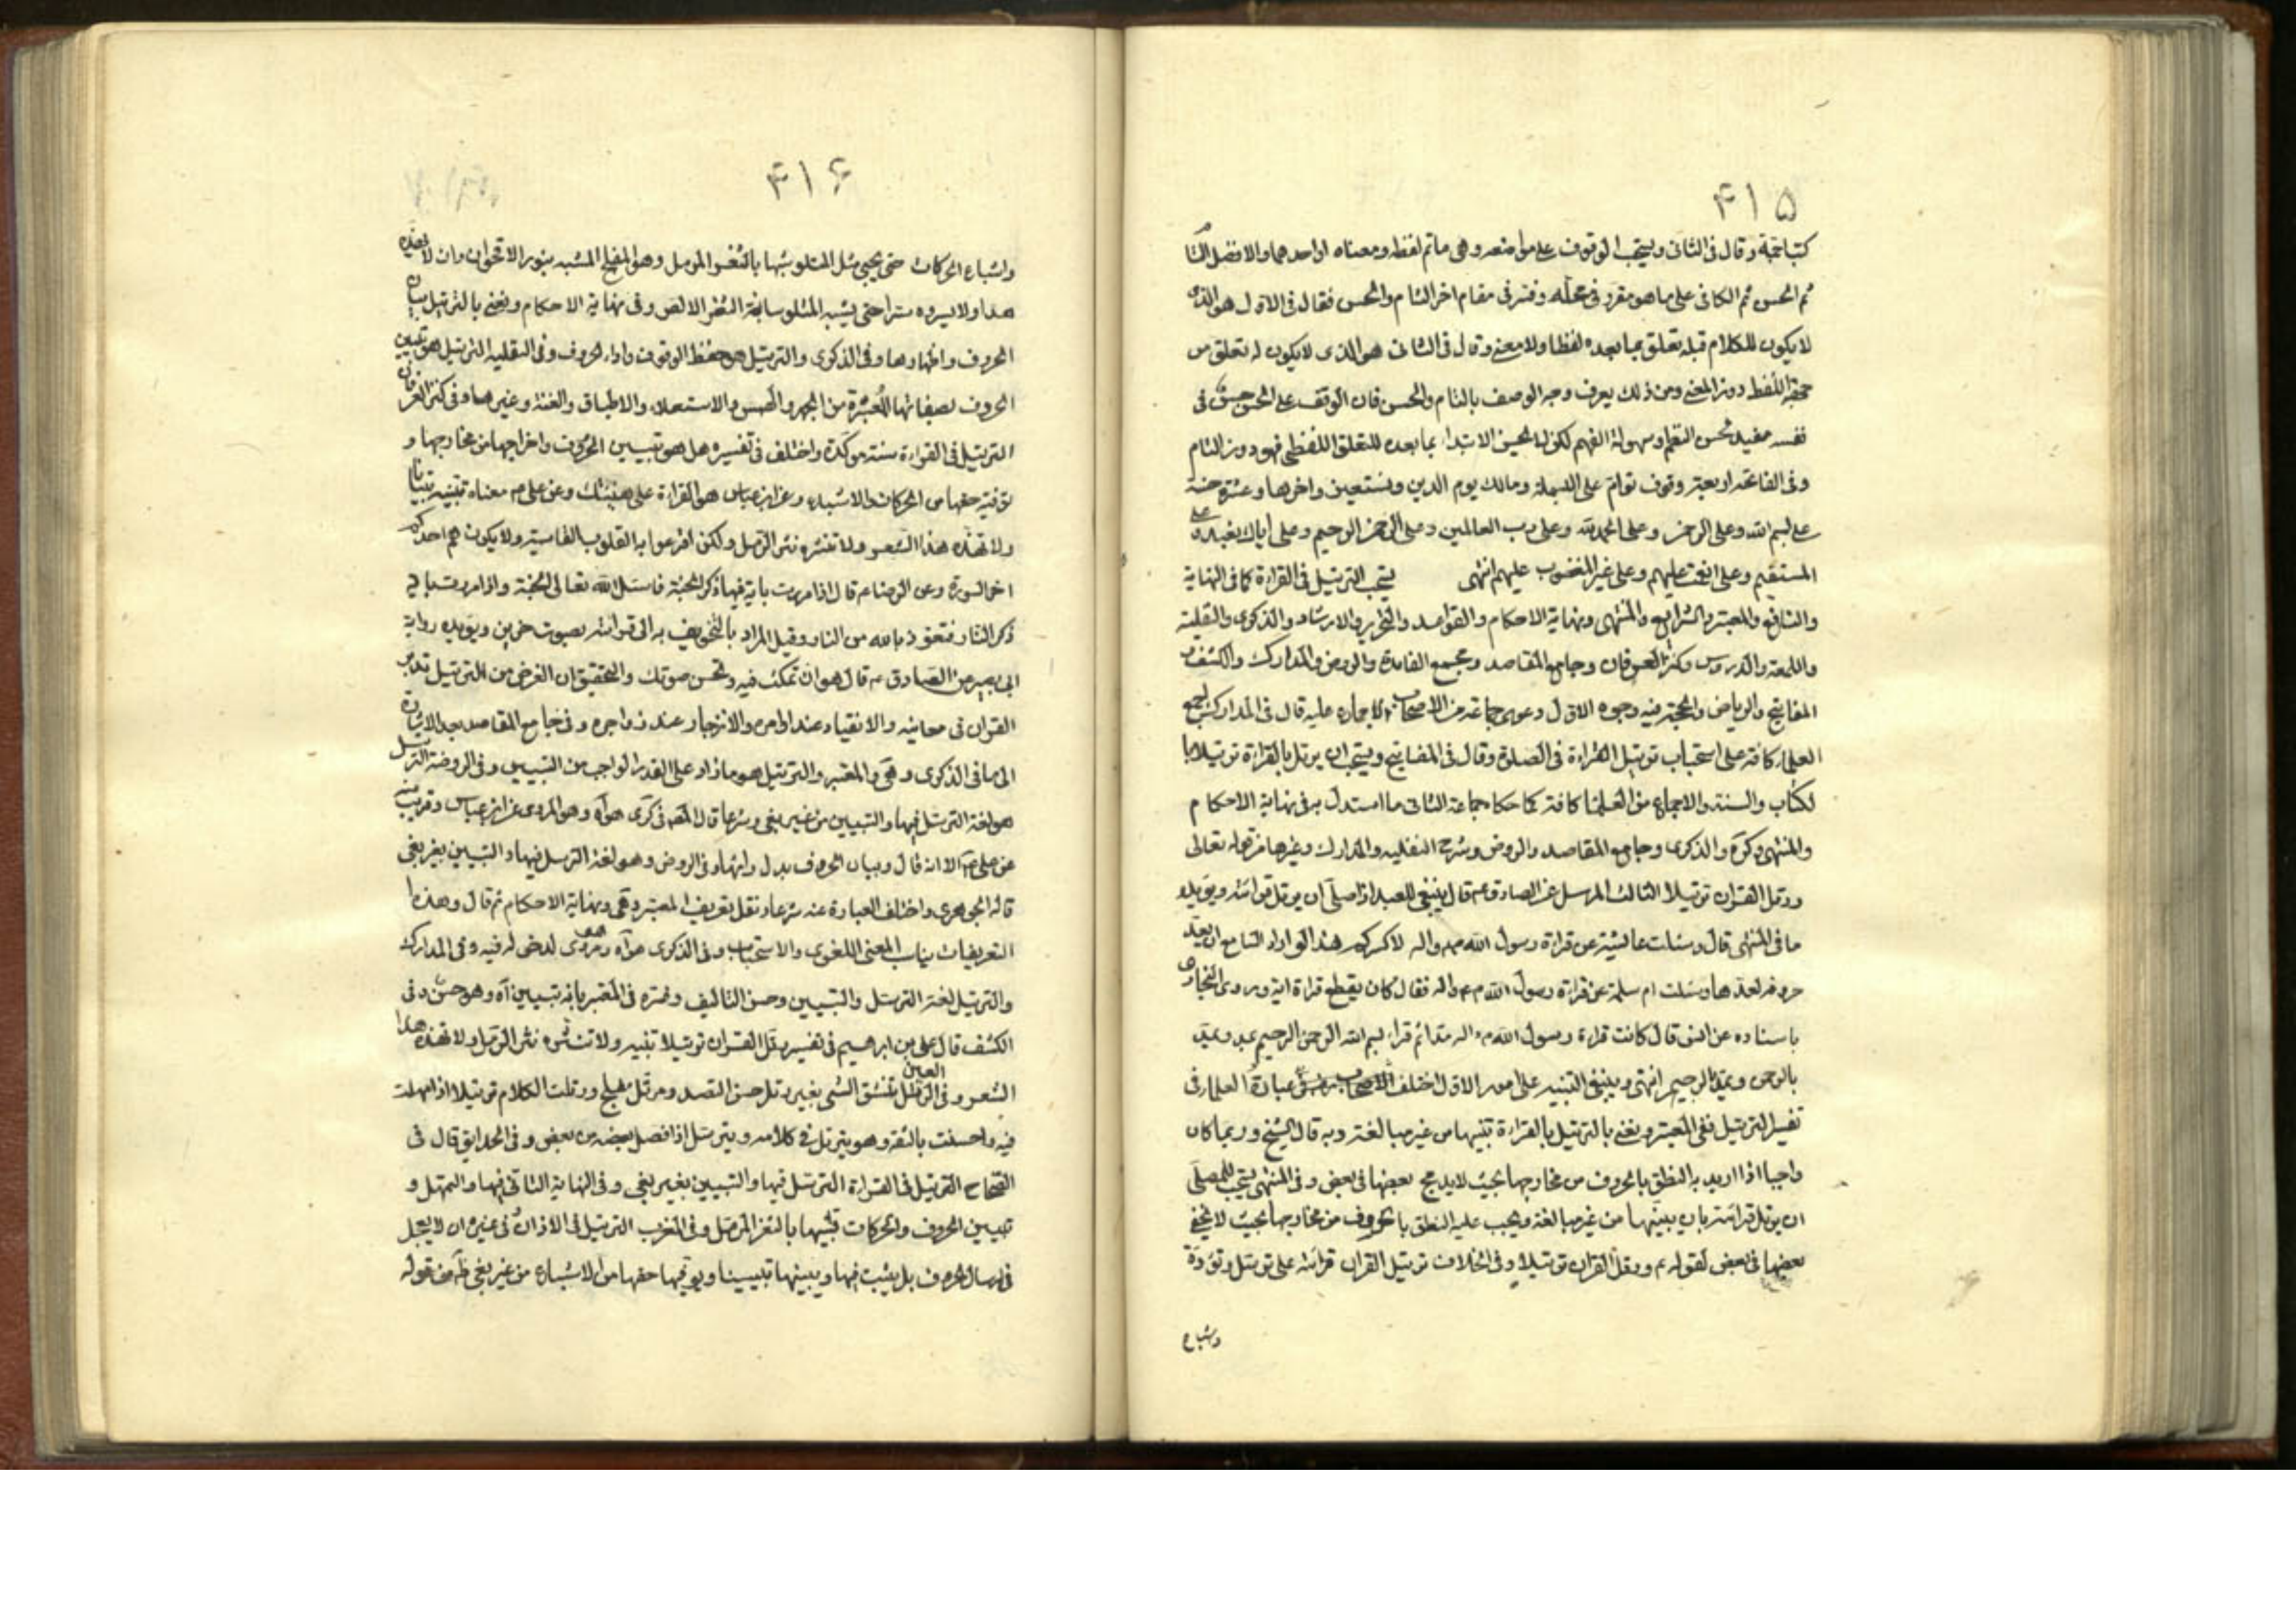 ۴۱۵
وقال في الثاني ويستحب الوقوف على مواضعه وهي ماتم لفظه ومعناه او احدهما والافضل التا
ثم الحسن ثم الكافي على ما هو مقرر في محله وفسر في مقام اخر التام والحسن فقال في الاول هو الذي
لا يكون للكلام قبله تعلق بما بعده لفظا ولا معنى وقال في الثاني هو الذي لا يكون له تعلق من
جهة اللفظ دون المعنى ومن ذلك يعرف وجه الوصف بالتام والحسن فان الوقف على الحسن حسن في
نفسه مفيد لحسن النظم وسهولة الفهم لكن لا يحسن الابتداء بما بعده للتعلق اللفظي فهو دون التام
وفي الفاتحة اربعة وقوف توام على البسملة ومالك يوم الدين ونستعين واخرها وعشرة حسنة
على بسم الله وعلى الرحمن وعلى الحمد لله وعلى رب العالمين وعلى الرحمن الرحيم وعلى اياك نعبد وعلى
المستقيم وعلى انعمت عليهم وعلى غير المغضوب عليهم انتهى يستحب الترتيل في القراءة كما في النهاية
والنافع والمعتبر والشرايع والمنتهى ونهاية الاحكام والقواعد والتحرير والارشاد والذكرى والنفلية
واللمعة والدروس وكنز العرفان وجامع المقاصد ومجمع الفائدة والروض والمدارك والكشف و
المفاتيح والرياض والحجة فيه وجوه الاول دعوى جماعة من الاصحاب الاجماع عليه قال في المدارك اجمع
العلماء كافة على استحباب ترتيل القراءة في الصلوة وقال في المفاتيح ويستحب ان يرتل بالقراءة ترتيلا با
لكتاب والسنة والاجماع من العلماء كافة كما حكاه جماعة الثاني ما استدل به في نهاية الاحكام
والمنتهى وكره والذكرى وجامع المقاصد والروض وشرح النفليه والمدارك وغيرها من قوله تعالى
ورتل القران ترتيلا الثالث المرسل عن الصادق ع قال ينبغي للعبد اذا صلى ان يرتل قرائته ويؤيده
ما في المنتهى قال وسئلت عايشة عن قراءة رسول الله ص واله لا كسركم هذا لو اراد السامع ان يعد
حروفه لعدها وسئلت ام سلمة عن قراءة رسول الله ص واله فقال كان يقطع قراءة اية وروى البخاري
باسناده عن انس قال كانت قراءة رسول الله ص واله مدا ثم قرا بسم الله الرحمن الرحيم يمد ويمد
بالرحمن ويمد بالرحيم انتهى وينبغي التنبيه على امور الاول اختلف الاصحاب عبارة العلماء في
تفسير الترتيل ففي المعتبر ونعني بالترتيل بالقراءة تبيينها من غير مبالغة وبه قال الشيخ وربما كان
واجبا اذا اريد به النطق بالحروف من مخارجها بحيث لا يدمج بعضها في بعض وفي المنتهى يستحب للمصلى
ان يرتل قرائته بان يبينها من غير مبالغة ويجب عليه النطق بالحروف من مخارجها بحيث لا يخفى
بعضها في بعض لقوله ع ورتل القران ترتيلا وفي الخلاف ترتيل القران قرائته على ترسل وتؤدة
واشباع
۴۱۶
واشباع الحركات حتى يجيئ مثل المتلو شبها بالثغر المرتل وهو المفلج المشبه بنور الاقحوان وان لا يهذه
هذا ولا يسرده سردا حتى يشبه المتلو سابغة الثغر الالص وفي نهاية الاحكام ونعنى بالترتيل بيان
الحروف واظهارها وفي الذكرى والترتيل هو حفظ الوقوف واداء الحروف وفي النفلية الترتيل هو تبيين
الحروف بصفاتها المعتبرة من الجهر والهمس والاستعلاء والاطباق والغنة وغيرها وفي كنز العرفان
الترتيل في القراءة سنة مؤكدة واختلف في تفسيره هل هو تبيين الحروف واخراجها من مخارجها و
توفية حقها من الحركات والاشباع وعن ابن عباس هو القراءة على هينتك وعن علي ع معناه تبينه تبيانا
ولا تهذه هذ الشعر ولا تنثره نثر الرمل ولكن افزعوا به القلوب القاسية ولا يكون هم احدكم
اخر السورة وعن الرضا ع قال اذا مررت باية فيها ذكر الجنة فاسئل الله تعالى الجنة واذا مررت باية
ذكر النار فتعوذ بالله من النار وقيل المراد بالتخويف به الى قرائته بصوت حزين ويؤيده رواية
ابي بصير من الصادق ع قال هو ان تمكث فيه وتحسن صوتك والتحقيق ان الغرض من الترتيل تدبر
القران في معانيه والانقياد عند اوامره والانزجار عند زواجره وفي جامع المقاصد بعد الاشارة
الى ما في الذكرى وهي والمعتبر والترتيل هو ما زاد على القدر الواجب من التبيين وفي الروضة الترتيل
هو لغة الترسل فيها والتبيين من غير بغي وشرعا قال المصه في كرى هو آه وهو المروى عن ابن عباس وقريب منه
عن علي ع الا انه قال وبيان الحروف بدل وادائها وفي الروض وهو لغة الترسل فيها والتبيين بغير بغي
قاله الجوهري واختلف العبارة عنه شرعا ونقل تعريف المعتبر وهي ونهاية الاحكام ثم قال وهذه
التعريفات يناسب المعنى اللغوي والاستحباب وفي الذكرى هو آه وهو مروى لدخل له فيه وفي المدارك
والترتيل لغة الترسل والتبيين وحسن التاليف وفسره في المعتبر بانه تبيين آه وهو حسن وفي
الكشف قال علي بن ابرهيم في تفسير رتل القران ترتيلا تبينه ولا تنثره نثر الرمل ولا تهذه هذا
الشعر وفي العين الرتل تنسق الشئ بغير رتل حسن النضد ومرتل مفلج ورتلت الكلام ترتيلا اذا امهلت
فيه واحسنت بالثقة وهو يترتل في كلامه ويترسل اذا فصل بعضه من بعض وفي الحدايق قال في
الصحاح الترتيل في القراءة الترسل فيها والتبيين بغير بغي وفي النهاية التاني فيها والتمهل و
تبيين الحروف والحركات تشبيها بالثغر المرتل وفي المغرب الترتيل في الاذان في غيره ان لا يعجل
في ارسال الحروف بل يثبت فيها ويبينها تبيينا ويوفيها حقها من الاشباع من غير بغي ظاهر من قوله